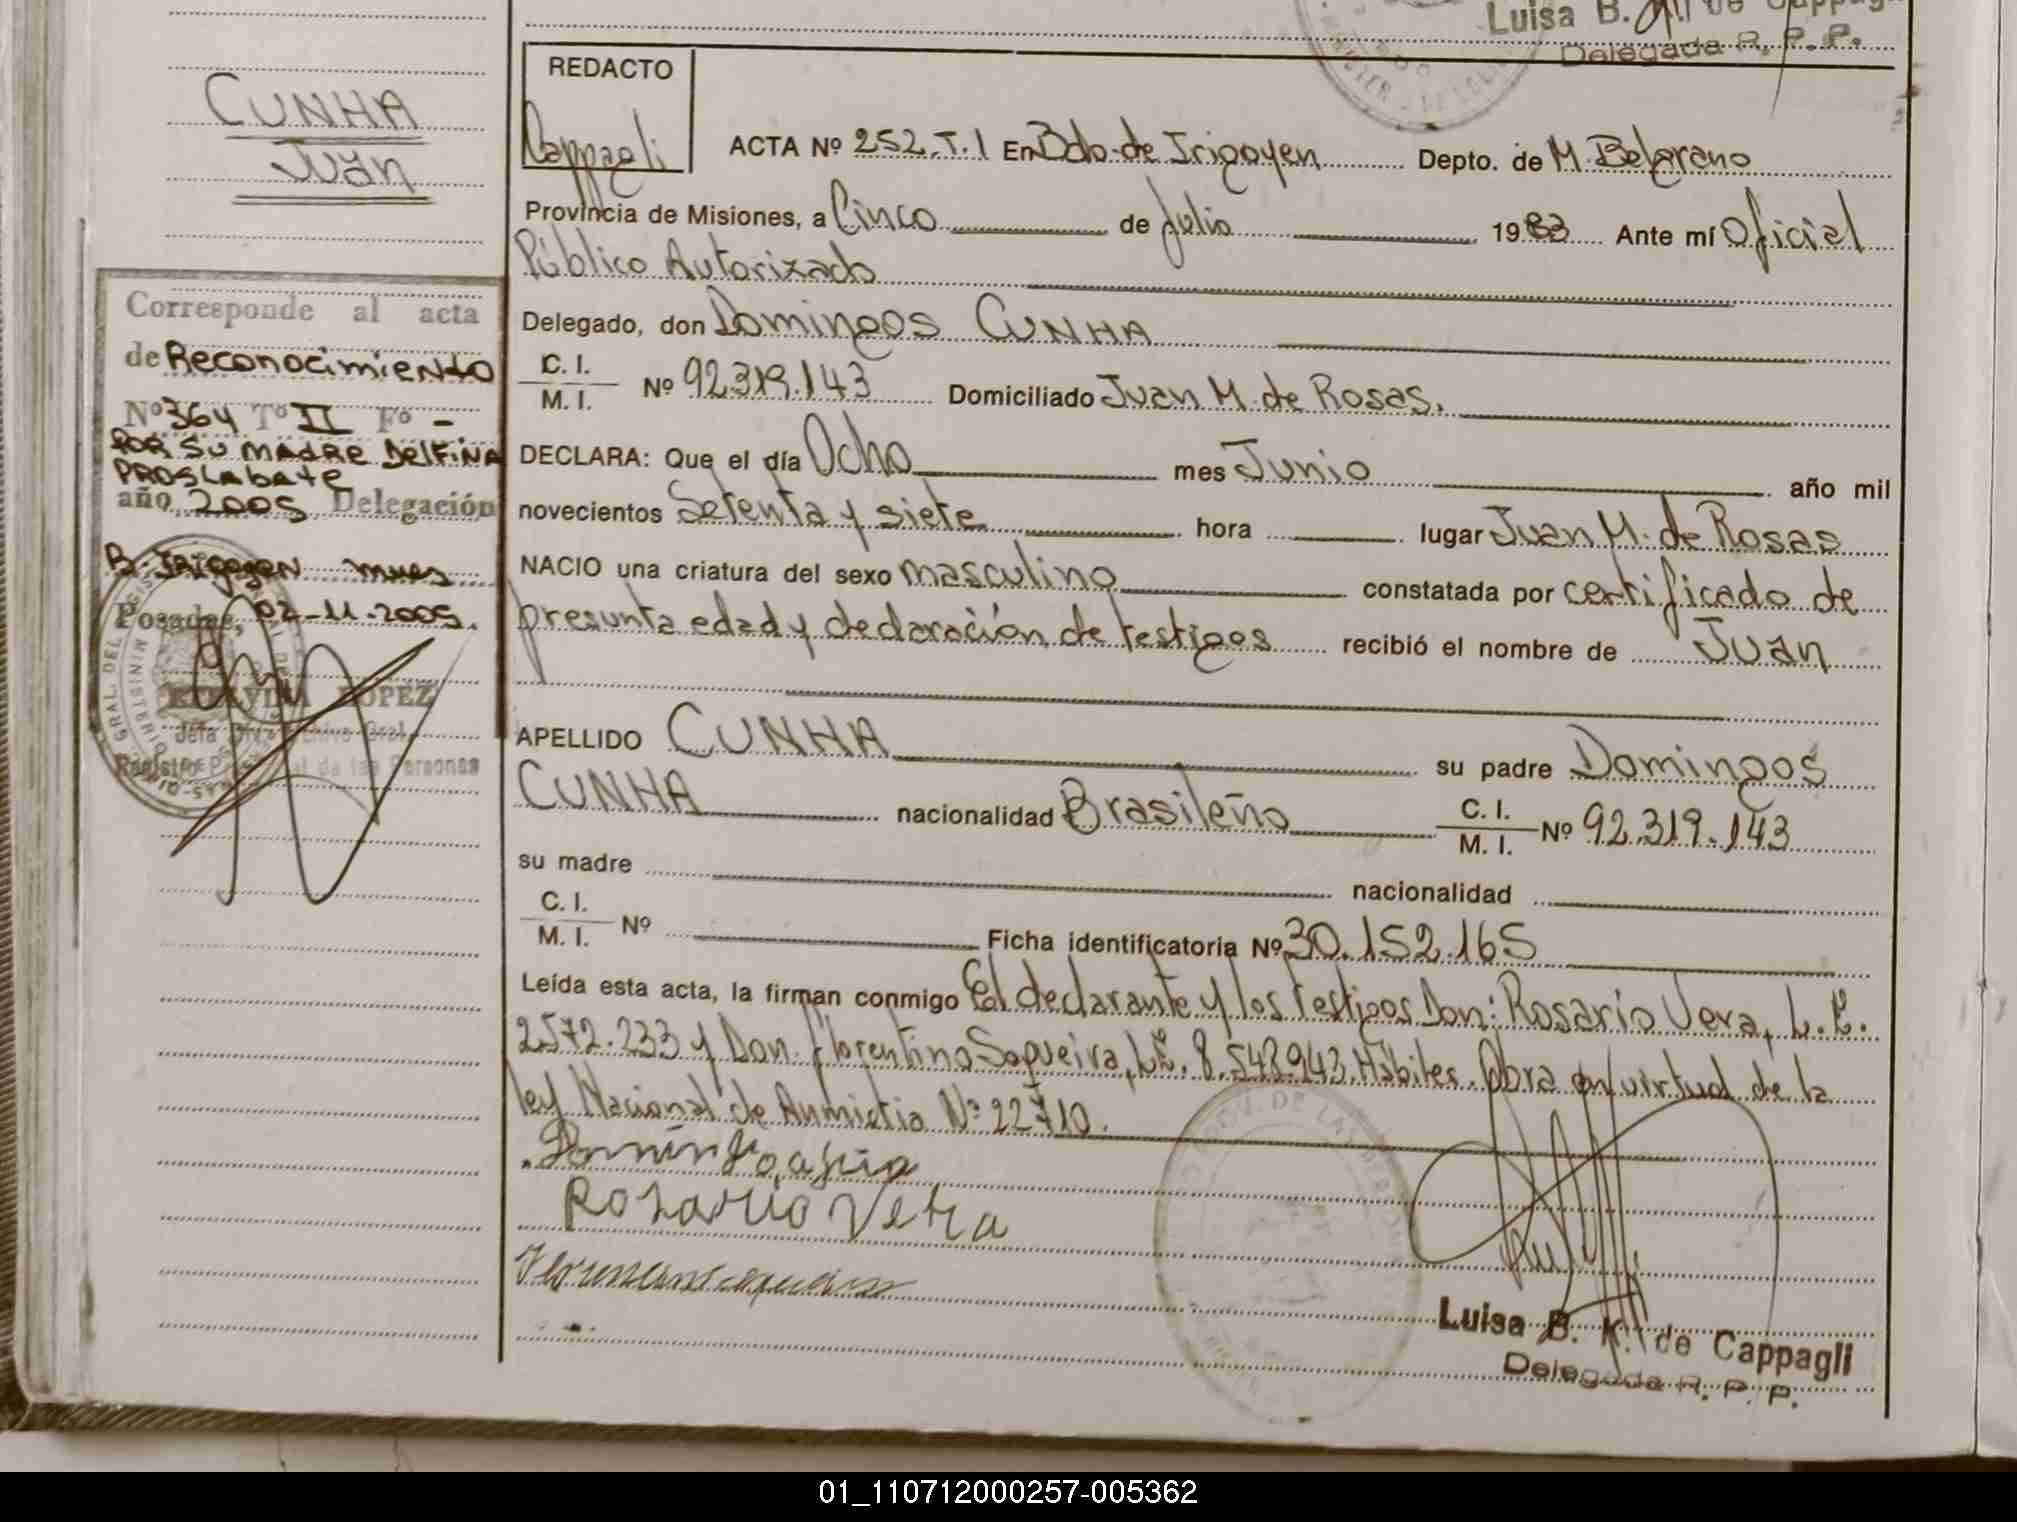 Luisa B. K. de Cappagli
Delegada R. P. P.
CUNHA
JUAN
Corresponde al acta
de Reconocimiento
Nº 364 Tº II Fº -
POR SU MADRE DELFINA
PROSLABATE
año 2005 Delegación
B. Irigoyen mnes
Posadas, 02-11-2005.
LOPEZ
Jefa Div. Archivo Gral.
Registro Provincial de las Personas
REDACTO
Cappagli
ACTA Nº 252. T. I En Bdo. de Irigoyen Depto. de M. Belgrano
Provincia de Misiones, a Cinco de Julio 1983 Ante mí Oficial
Público Autorizado
Delegado, don Domingos CUNHA
C. I. / M. I. Nº 92.319.143 Domiciliado Juan M. de Rosas.
DECLARA: Que el día Ocho mes Junio año mil
novecientos Setenta y siete hora lugar Juan M. de Rosas
NACIO una criatura del sexo masculino constatada por certificado de
presunta edad y declaración de testigos recibió el nombre de JUAN
APELLIDO CUNHA su padre Domingos
CUNHA nacionalidad Brasileño C. I. / M. I. Nº 92.319.143
su madre nacionalidad
C. I. / M. I. Nº Ficha identificatoria Nº 30.152.165
Leída esta acta, la firman conmigo El declarante y los testigos Don: Rosario Vera, L.E.
2.572.233 y Don Florentino Soqueira, L.E. 8.548.943. Hábiles. Obra en virtud de la
ley Nacional de Anmistia Nº 22710.
Rosario Vera
Luisa B. K. de Cappagli
Delegada R. P. P.
01_110712000257-005362